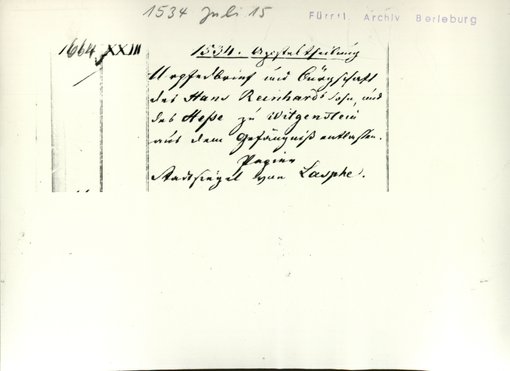 1534 Juli 15
Fürstl. Archiv Berleburg
1664 XXIII
1534. Aposteltheilung
Urfehdbrief und Bürgschaft
des Hans Reinhards Sohn, und
des Hesse zu Witgenstein
aus dem Gefängniß entlassen.
Papier
Stadtsiegel von Lasphe.